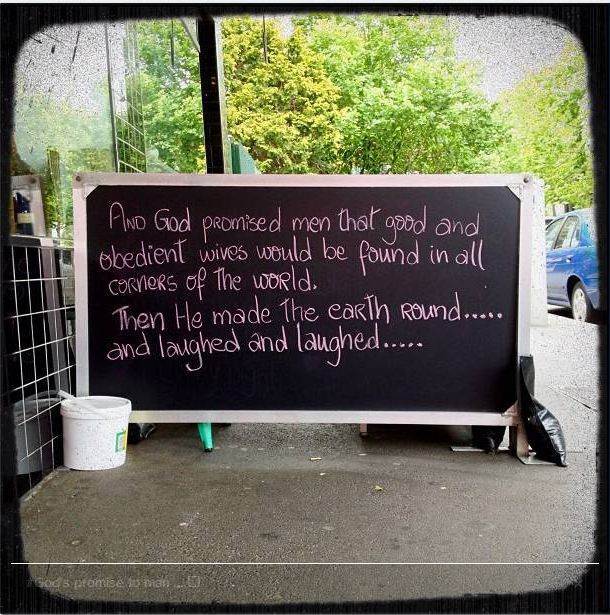 And God promised men that good and
obedient wives would be found in all
corners of the world.
Then He made the earth round.....
and laughed and laughed.....
God's promise to man ...